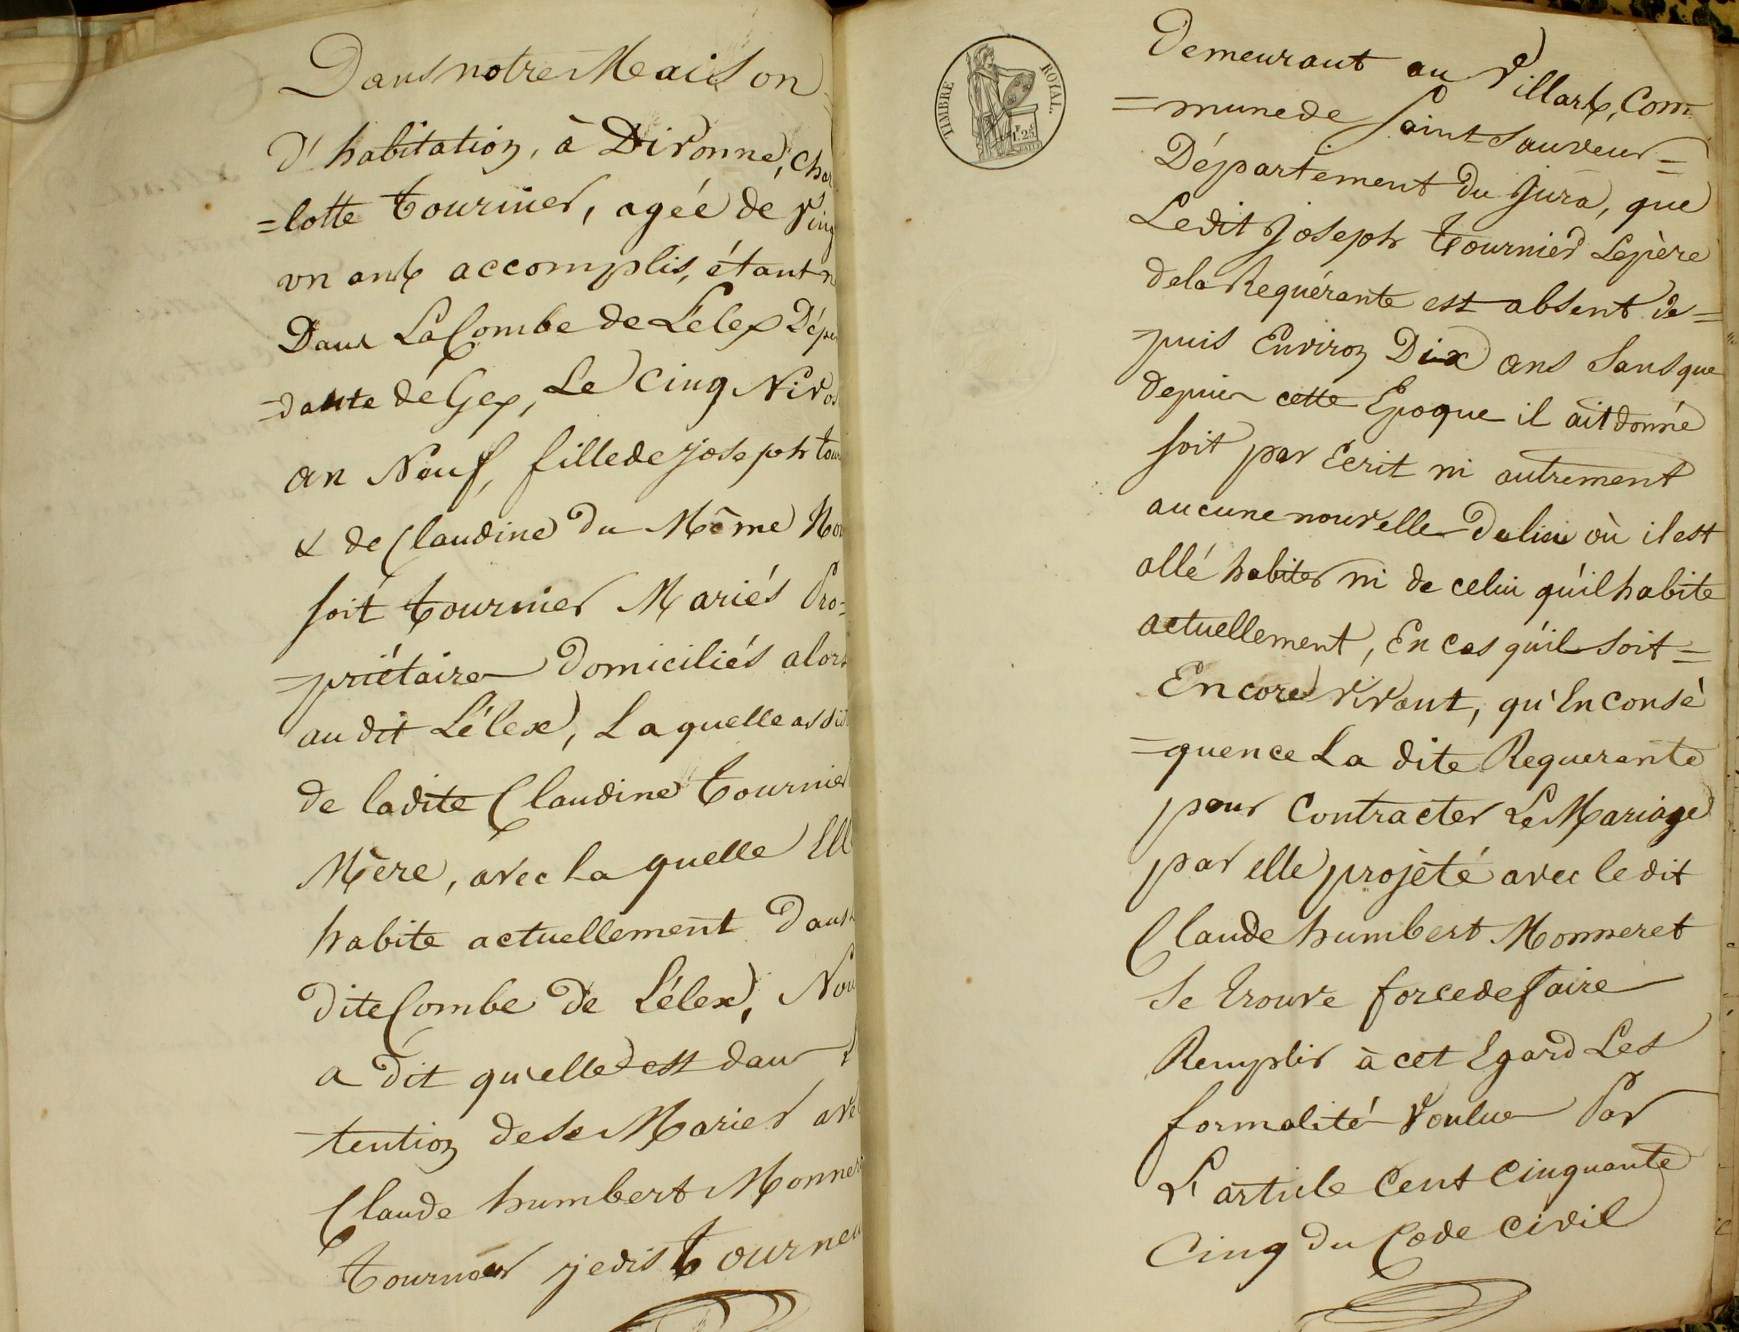 Dans notre Maison
d'habitation, à Divonne, Char
=lotte Tournier, agée de Ving
un ans accomplis, étant n
Dans La Combe de Lélex Dépen
=dante de Gex, Le Cinq Nivos
an Neuf, fille de joseph tour
& de Claudine du Même No
soit tournier Mariés Pro=
=priétaires domiciliés alors
au dit Lélex, Laquelle assis
de ladite Claudine Tournier
Mère, avec la quelle Elle
habite actuellement Dans
dite Combe de Lélex, Nous
a dit qu'elle est dans
=tention de se Marier ave
Claude humbert Monner
Tourneur je dis Tourneu
TIMBRE ROYAL
1f 25c
Demeurant au Villard, Com=
=mune de Saint Sauveur=
Département du Jura, que
Ledit Joseph Tournier Le père
de la Requérante est absent de=
=puis Environ Dix ans Sans que
depuis cette Epoque il ait donné
soit par Ecrit ni autrement
aucune nouvelle du lieu où il est
allé habiter ni de celui qu'il habite
actuellement, En cas qu'il soit=
Encore vivant, qu'En consé
=quence La dite Requerante
pour Contracter Le Mariage
par elle projété avec le dit
Claude humbert Monneret
Se trouve forcé de faire
Remplir à cet Egard Les
formalités voulues Par
L'article Cent Cinquante
Cinq du Code Civil